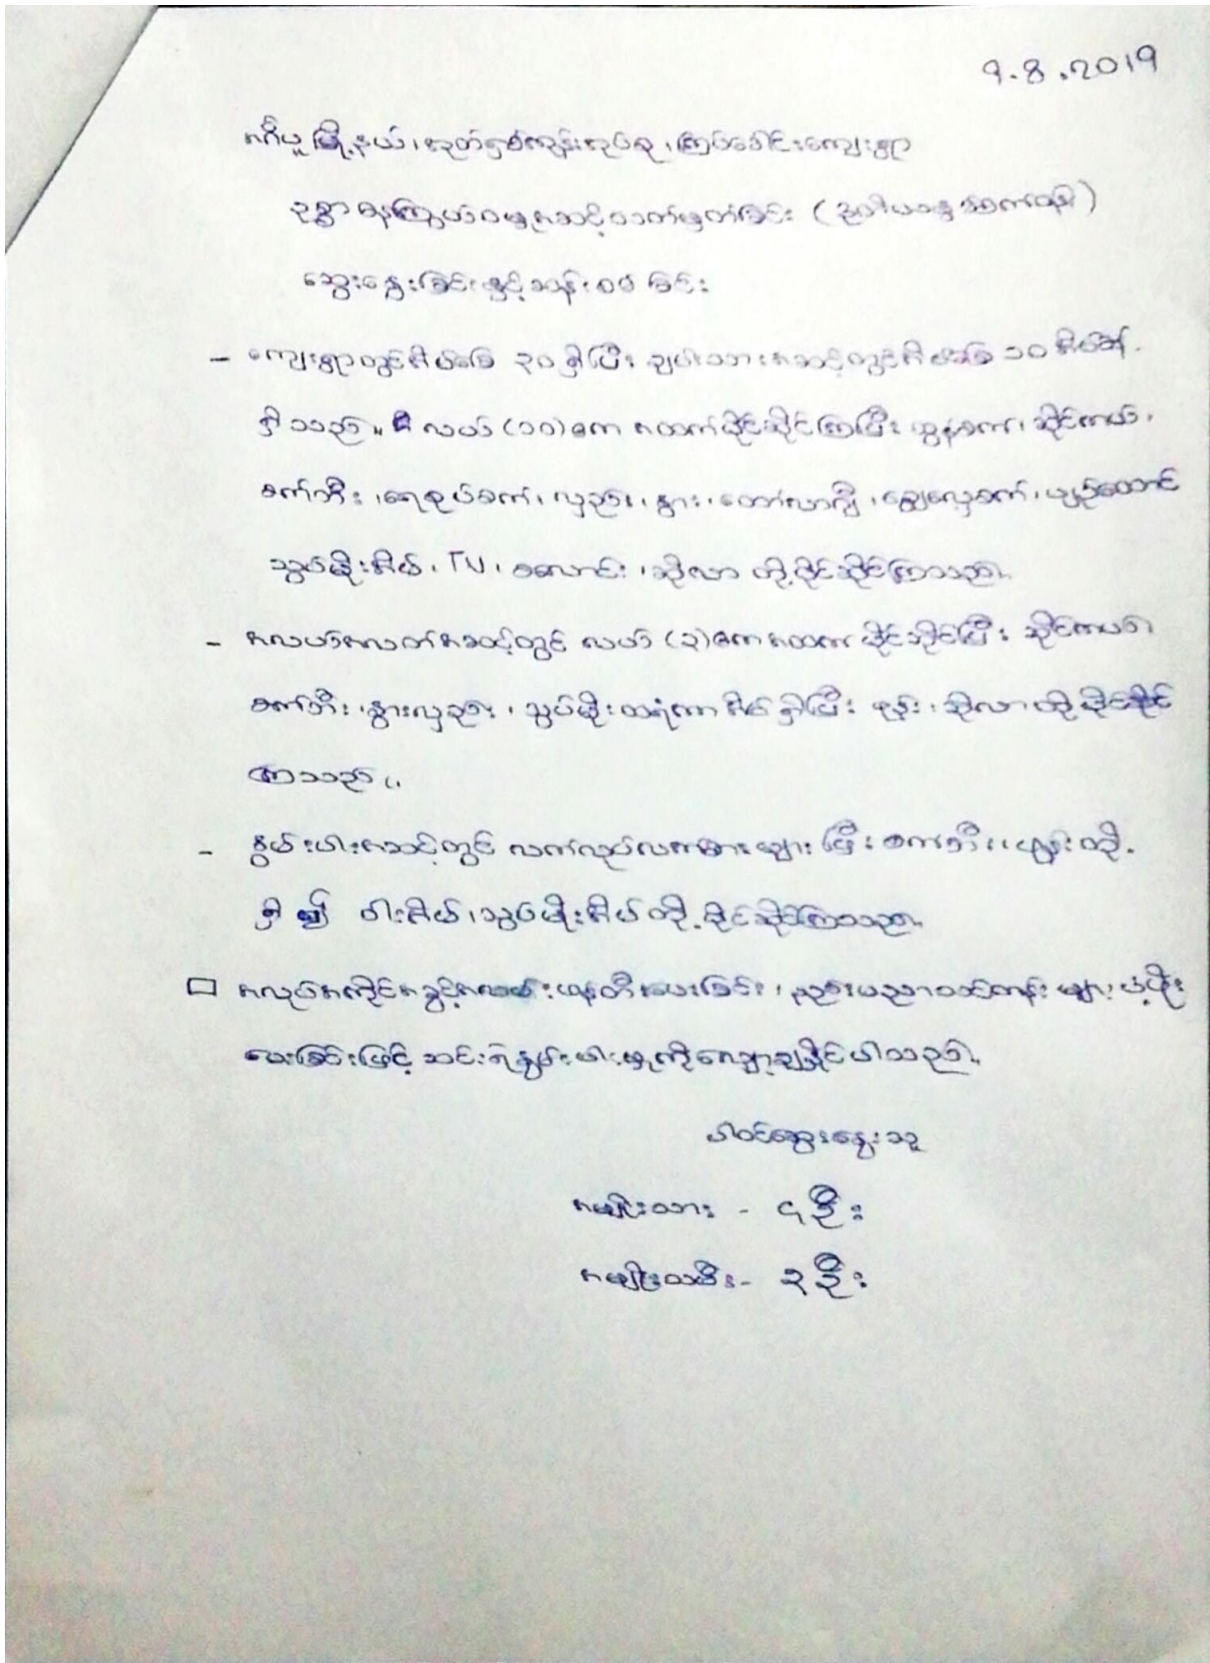 9.8.2019
အင်္ဂပူမြို့နယ်၊ အုတ်ရှစ်ကျွန်းအုပ်စု၊ ကြပ်ခေါင်းကျေးရွာ
ဥစ္စာဓနကြွယ်ဝမှုအဆင့်သတ်မှတ်ခြင်း (ဒုတိယ
ဆွေးနွေးခြင်းနှင့်ဆန်းစစ်ခြင်း
- ကျေးရွာတွင်အိမ်ခြေ ၃၀ ရှိပြီး ချမ်းသာအဆင့်တွင်အိမ်ခြေ ၁၀ အိမ်ခန့်
ရှိသည်။ လယ် (၁၀) ဧက အထက်ပိုင်ဆိုင်ကြပြီး ထွန်စက်၊ ဆိုင်ကယ်၊
စက်ဘီး၊ ရေစုပ်စက်၊ လှည်း၊ နွား၊ တော်လာဂျီ၊ ချွေလှေ့စက်၊ ပျဉ်ထောင်
သွပ်မိုးအိမ်၊ TV၊ စလောင်း၊ ဆိုလာ တို့ပိုင်ဆိုင်ကြသည်။
- အလယ်အလတ်အဆင့်တွင် လယ် (၃) ဧကအထက် ပိုင်ဆိုင်ပြီး ဆိုင်ကယ်၊
စက်ဘီး၊ နွားလှည်း၊ သွပ်မိုးထရံကာအိမ်ရှိပြီး ဖုန်း၊ ဆိုလာတို့ပိုင်ဆိုင်
ကြသည်။
- နွမ်းပါးအဆင့်တွင် လက်လုပ်လက်စားများ ပြီး စက်ဘီး၊ ဖုန်းတို့
ရှိ၍ ဝါးအိမ်၊ သွပ်မိုးအိမ်တို့ပိုင်ဆိုင်ကြသည်။
□ အလုပ်အကိုင်အခွင့်အလမ်းဖန်တီးပေးခြင်း၊ ပညာသင်တန်းများပံ့ပိုး
ပေးခြင်းဖြင့် ဆင်းရဲနွမ်းပါးမှုကိုလျှော့ချနိုင်ပါသည်။
ပါဝင်ဆွေးနွေးသူ
အမျိုးသား - ၄ဦး
အမျိုးသမီး - ၃ဦး